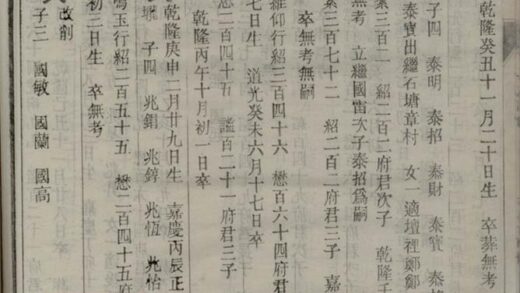 乾隆癸丑十一月二十日生 卒葬無考
子四 泰明 泰招 泰財 泰寶 泰
泰寶出繼石塘章村 女一適壇裡鄭鄭
紹二百二府君次子 乾隆壬
無考 立繼國雷次子泰招爲嗣
三百七十二 紹二百二府君三子 嘉
卒無考無嗣
維仰行紹三百四十六 懋百六十四府君
七日生 道光癸未六月十七日卒
懋二百四十五 謐百二十一府君三子
乾隆丙午十月初一日卒
乾隆庚申二月廿九日生 嘉慶丙辰正
子四 兆錩 兆錞 兆恆 兆怡
玉行紹二百五十五 懋二百四十五府
初三日生 卒無考
改削
子三 國敏 國蘭 國高